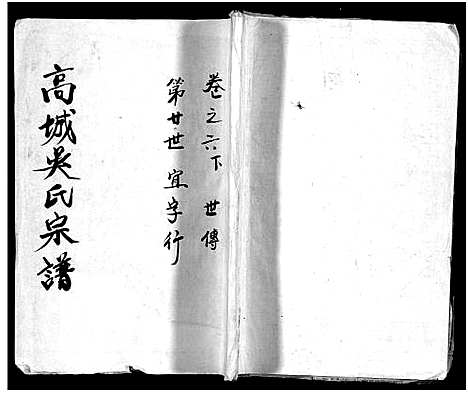 卷之六下 世傳
第廿世 宜字行
高城吳氏宗譜